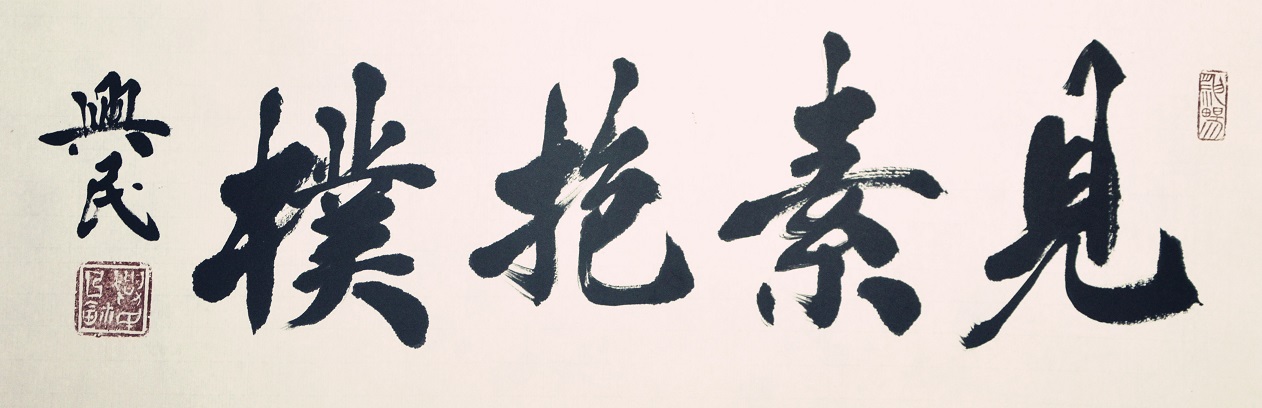 見素抱樸
興民